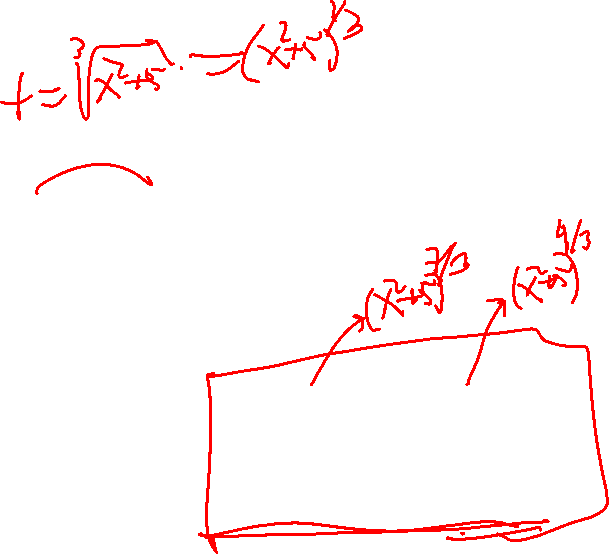 t = ∛(x²+5) = (x²+5)^1/3
(x²+5)^7/3 (x²+5)^4/3